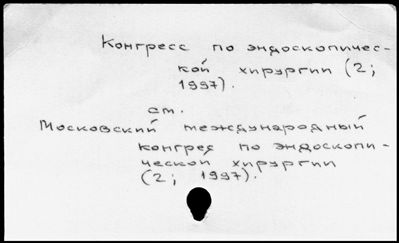 Конгресс по эндоскопичес-
кой хирургии (2;
1997).
см.
Московский международный
конгрес по эндоскопи-
ческой хирургии
(2; 1997).